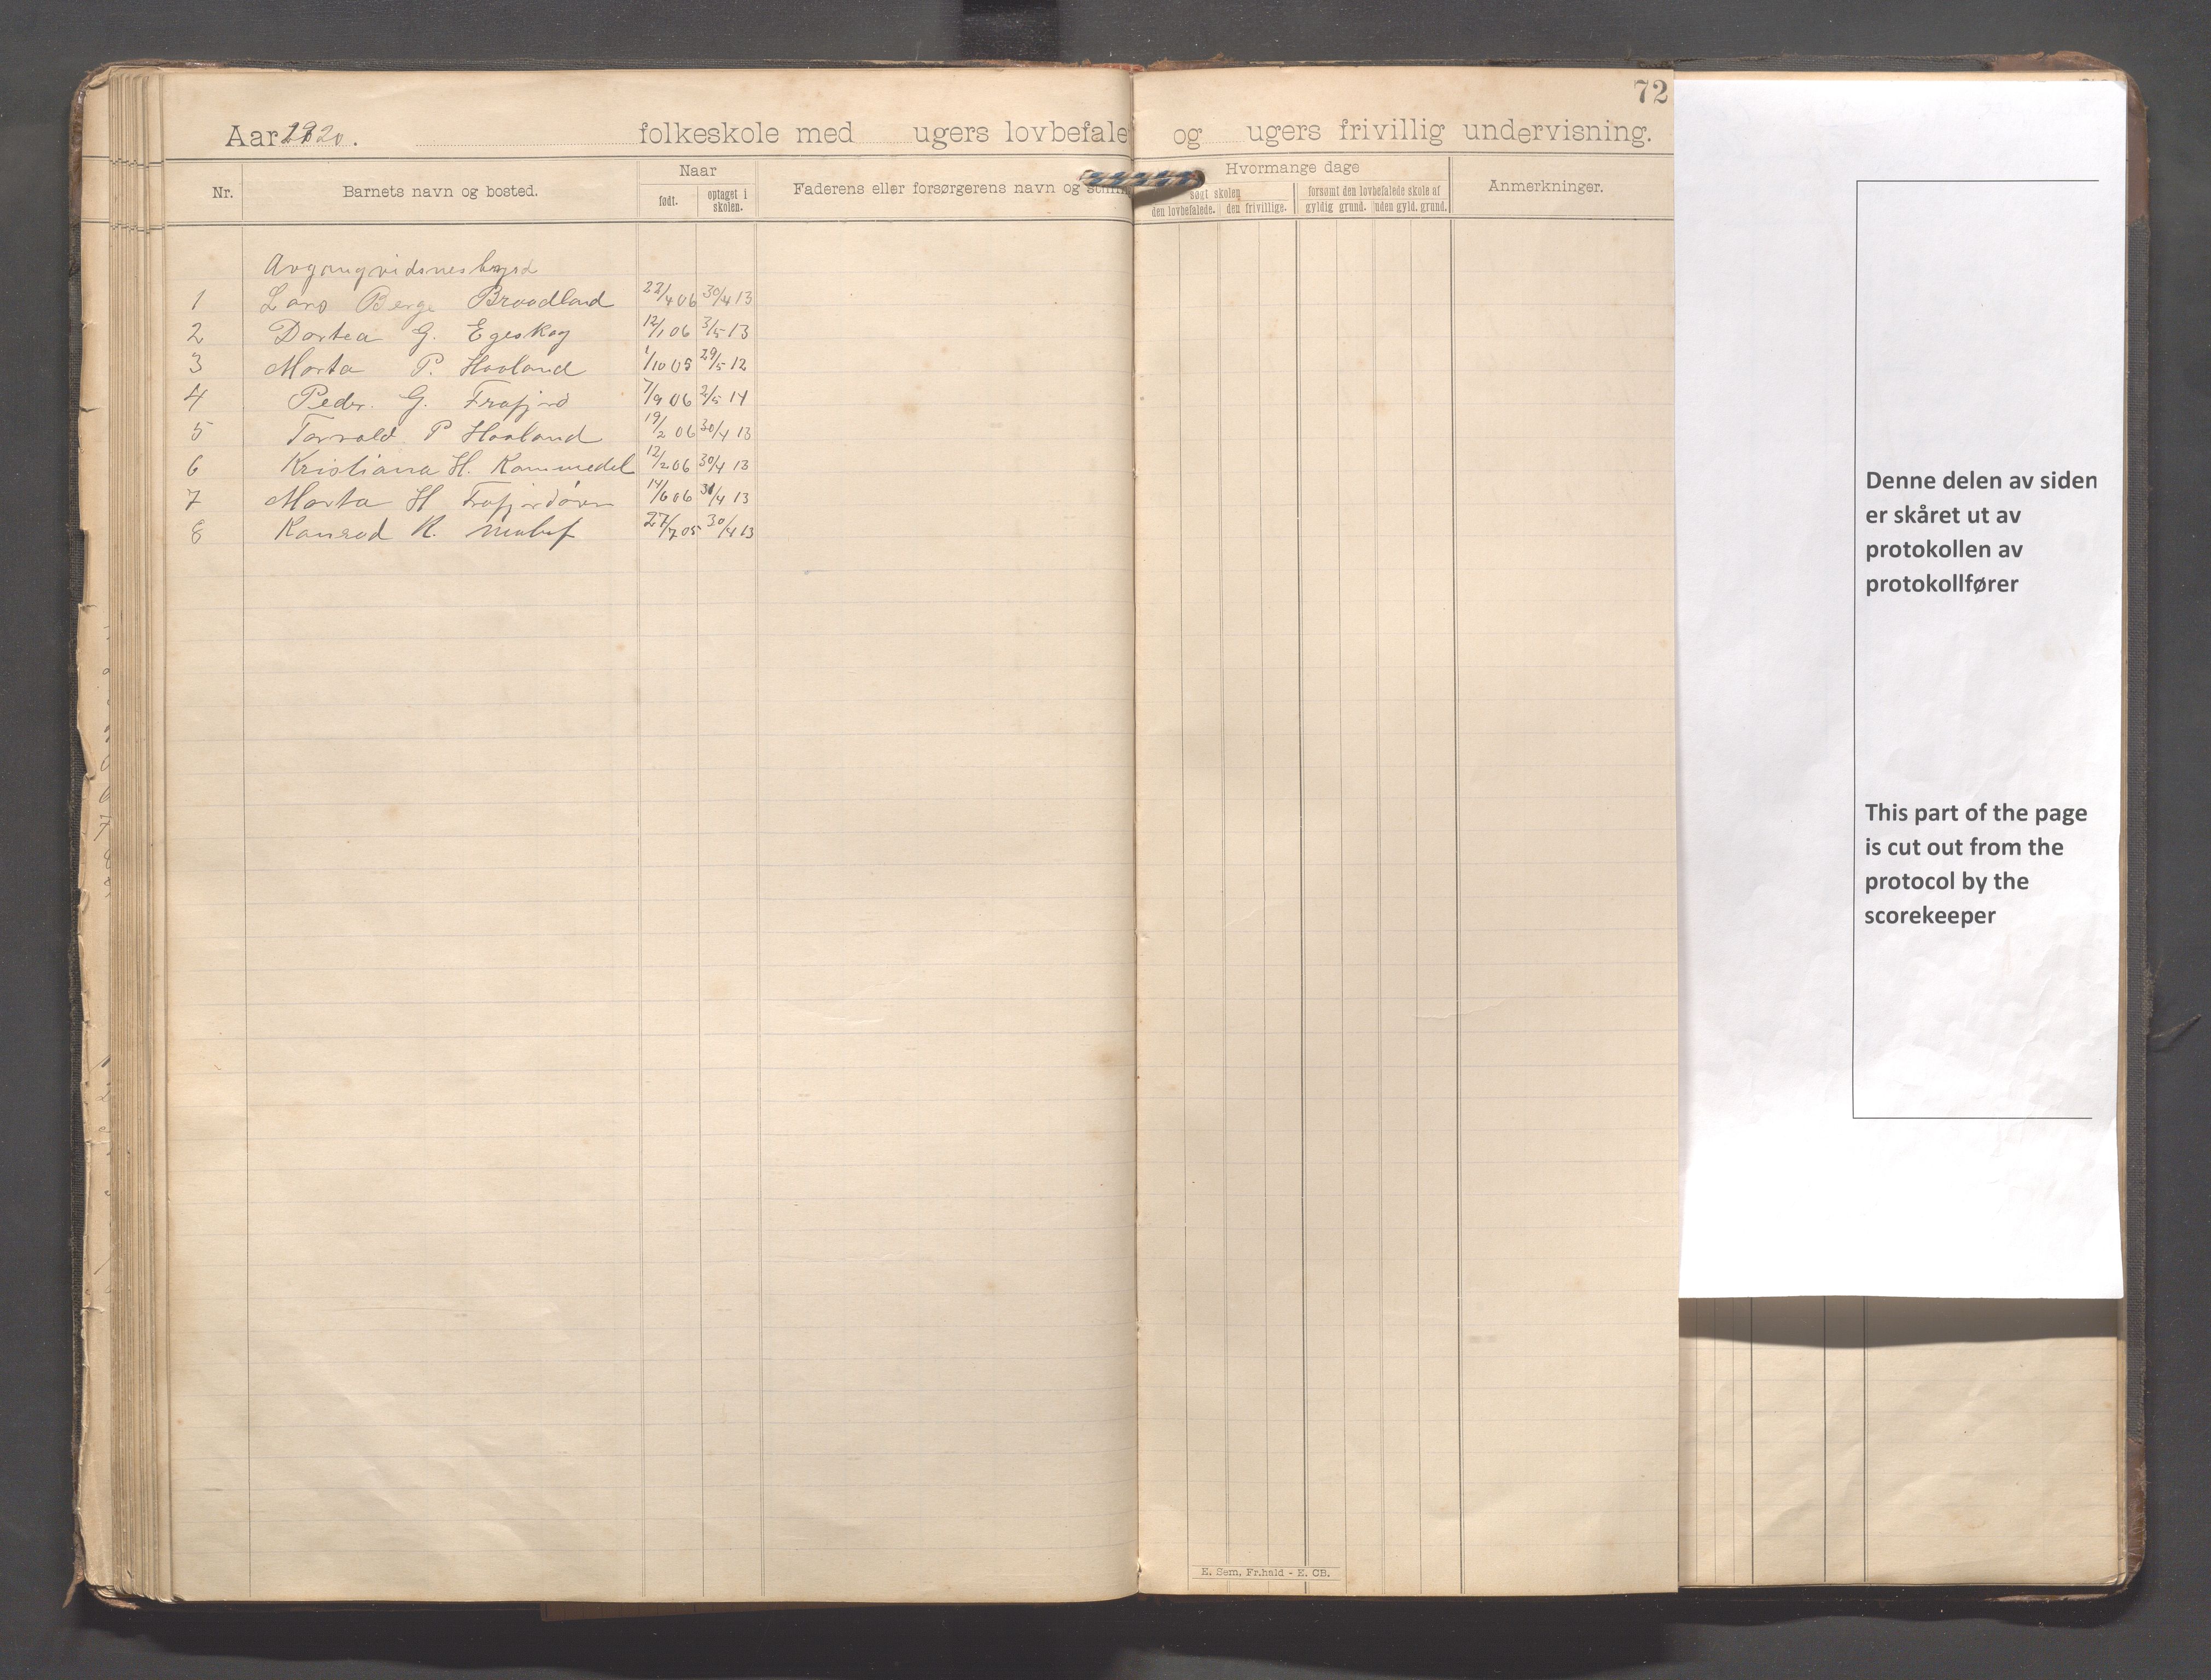 72
Aar 1920. folkeskole med ugers lovbefale og ugers frivillig undervisning.
Nr. Barnets navn og bosted. Naar Faderens eller forsørgerens navn og Hvormange dage Anmerkninger.
født. optaget i skolen. søgt skolen forsømt den lovbefalede skole af
den lovbefalede. den frivillige. gyldig grund. uden gyld. grund.
1 Lars Berge Braadland 22/4 06 30/4 13
2 Dortea G. Egeskog 12/1 06 3/5 13
3 Marta P. Haaland 1/10 05 29/5 12
4 Peder. G. Frafjord 7/9 06 2/5 14
5 Torvald P Haaland 19/2 06 30/4 13
6 Kristiana H. Kommedal 12/2 06 30/4 13
7 Marta H Frafjordøren 14/6 06 30/4 13
8 Konrad R. 27/7 05 30/4 13
E. Sem, Fr.hald - E. CB.
Denne delen av siden
er skåret ut av
protokollen av
protokollfører
This part of the page
is cut out from the
protocol by the
scorekeeper